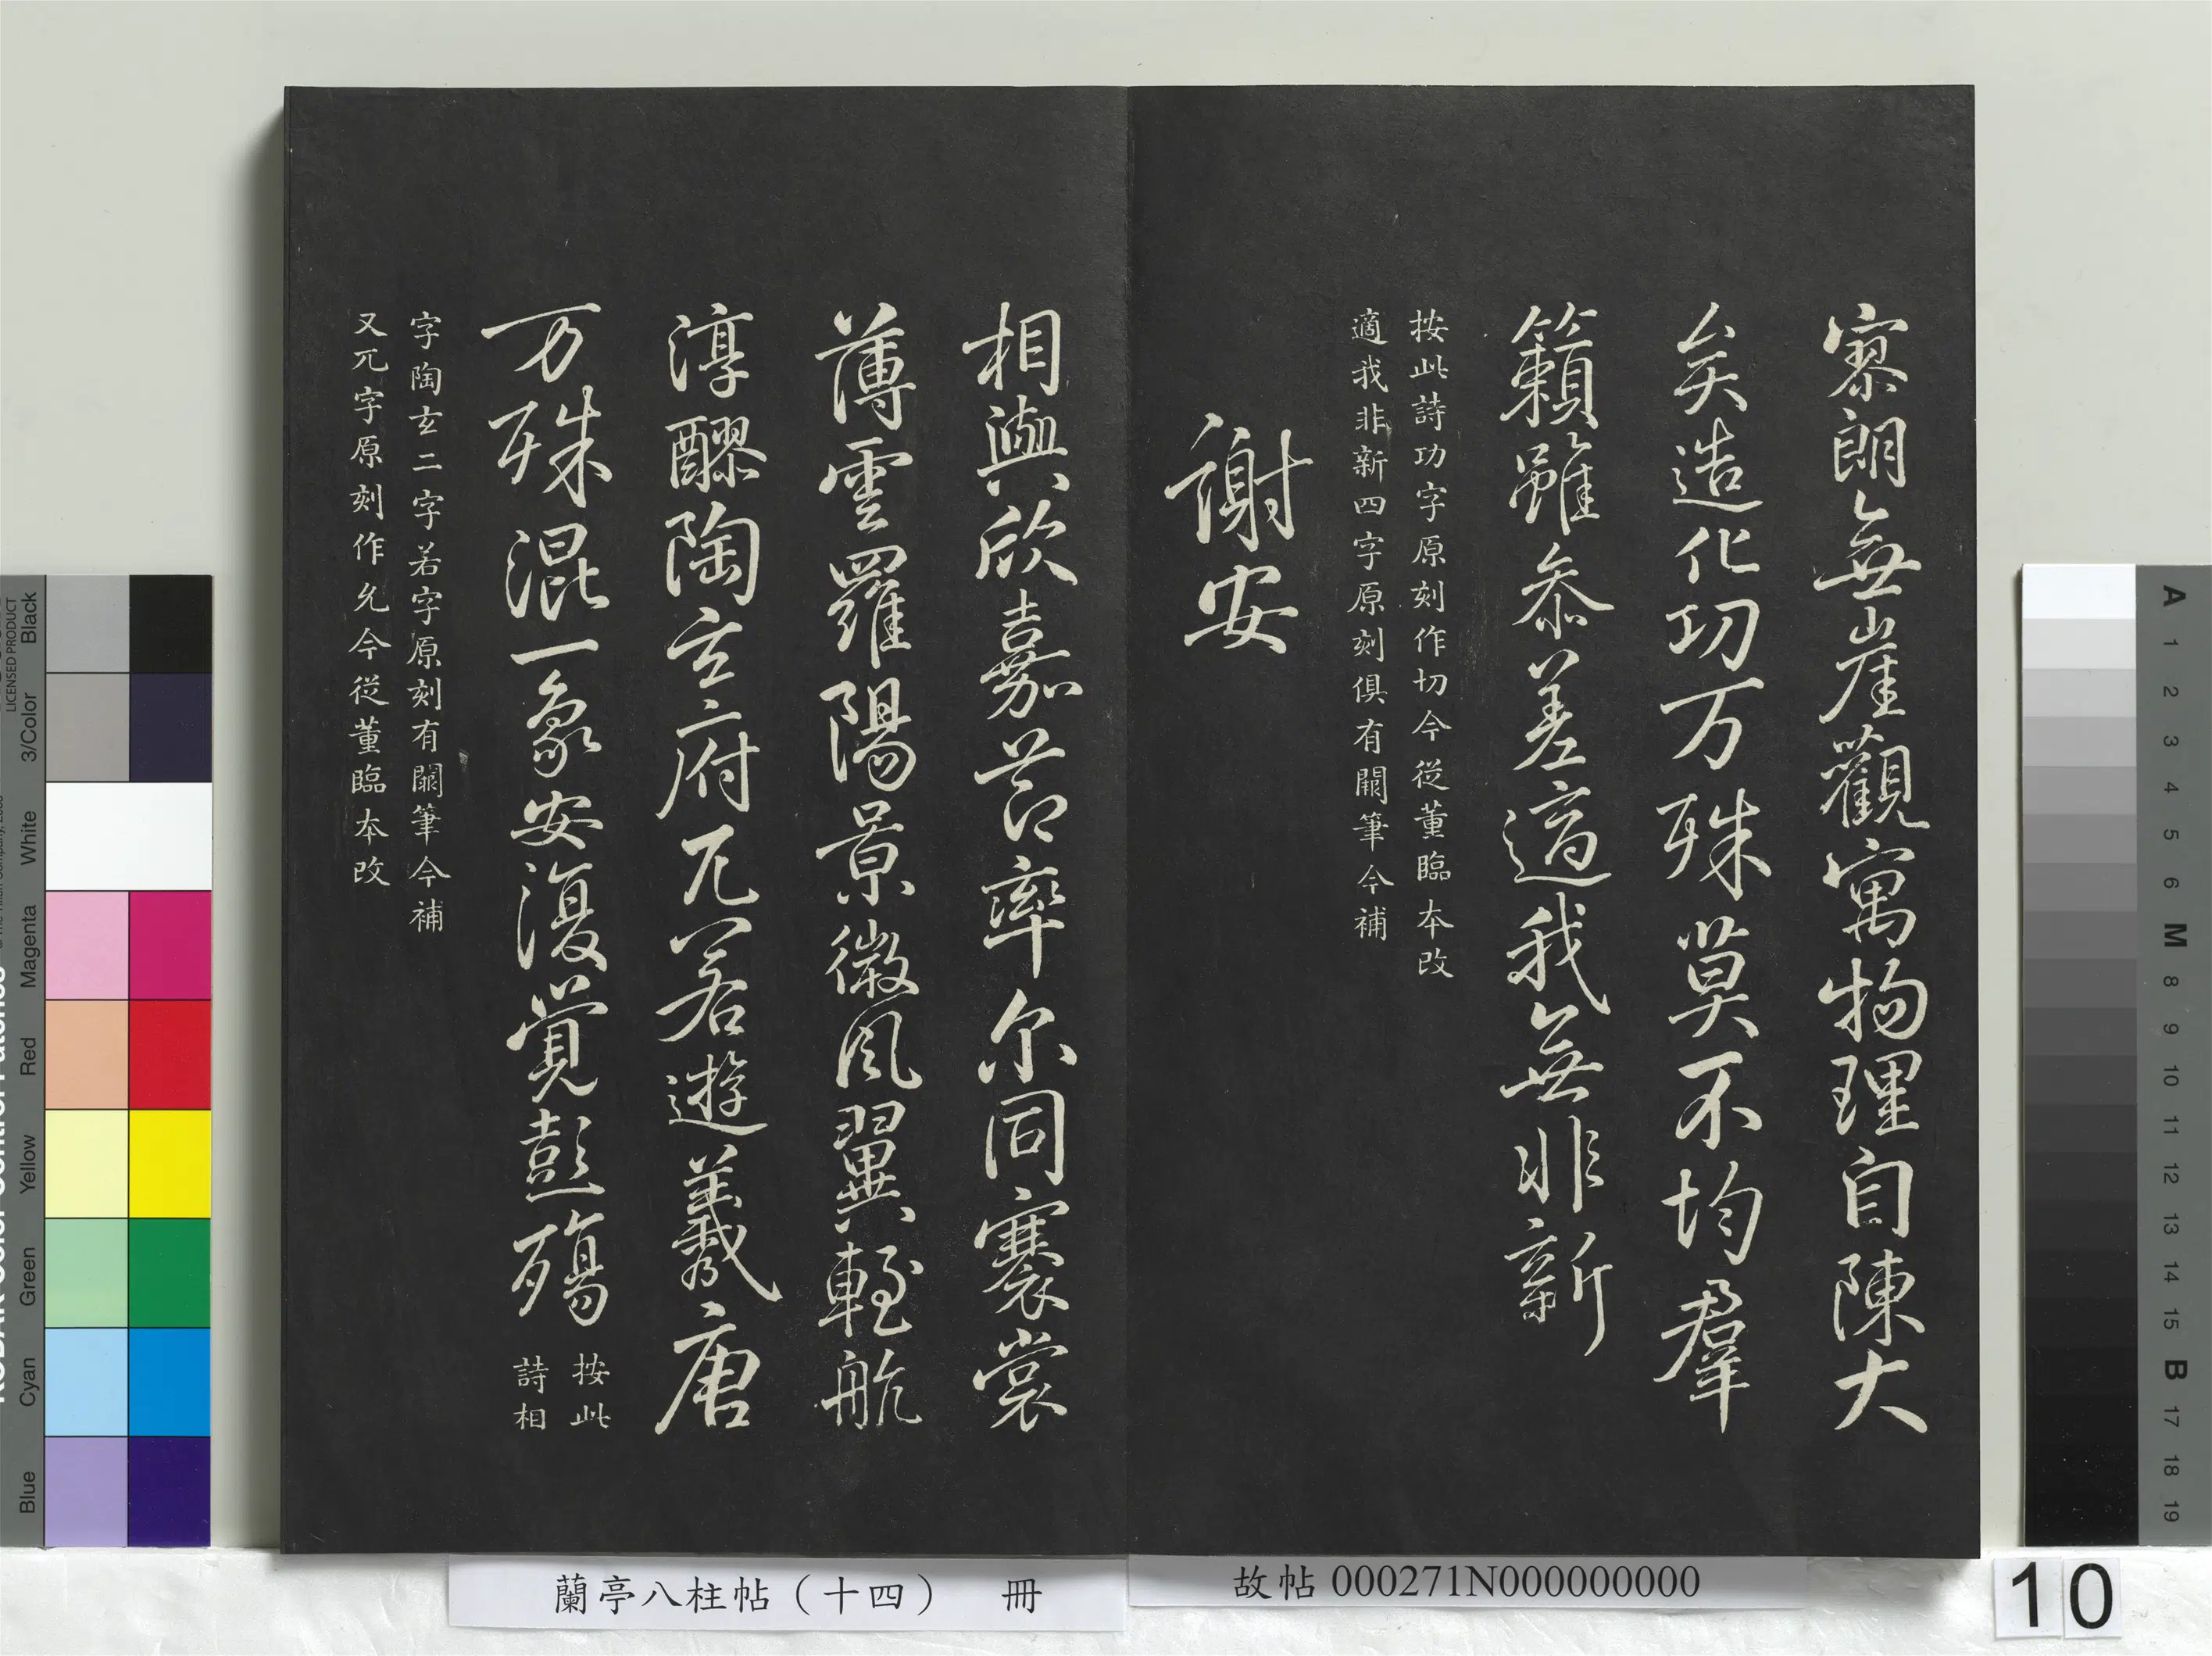 寥朗無崖觀寓物理自陳大
矣造化功万殊莫不均羣
籟雖叅差適我無非新
按此詩功字原刻作切今從董臨本改
適我非新四字原刻俱有闕筆今補
謝安
相與欣嘉莭率尓同褰裳
薄雲羅陽景微風翼輕航
淳醪陶玄府兀若遊羲唐
万殊混一象安復覺彭殤
按此
詩相
字陶玄二字若字原刻有闕筆今補
又兀字原刻作允今從董臨本改
蘭亭八柱帖（十四） 冊
故帖 000271N000000000
10
LICENSED PRODUCT
Black
3/Color
White
Magenta
Red
Yellow
Green
Cyan
Blue
A
1
2
3
4
5
6
M
8
9
10
11
12
13
14
15
B
17
18
19